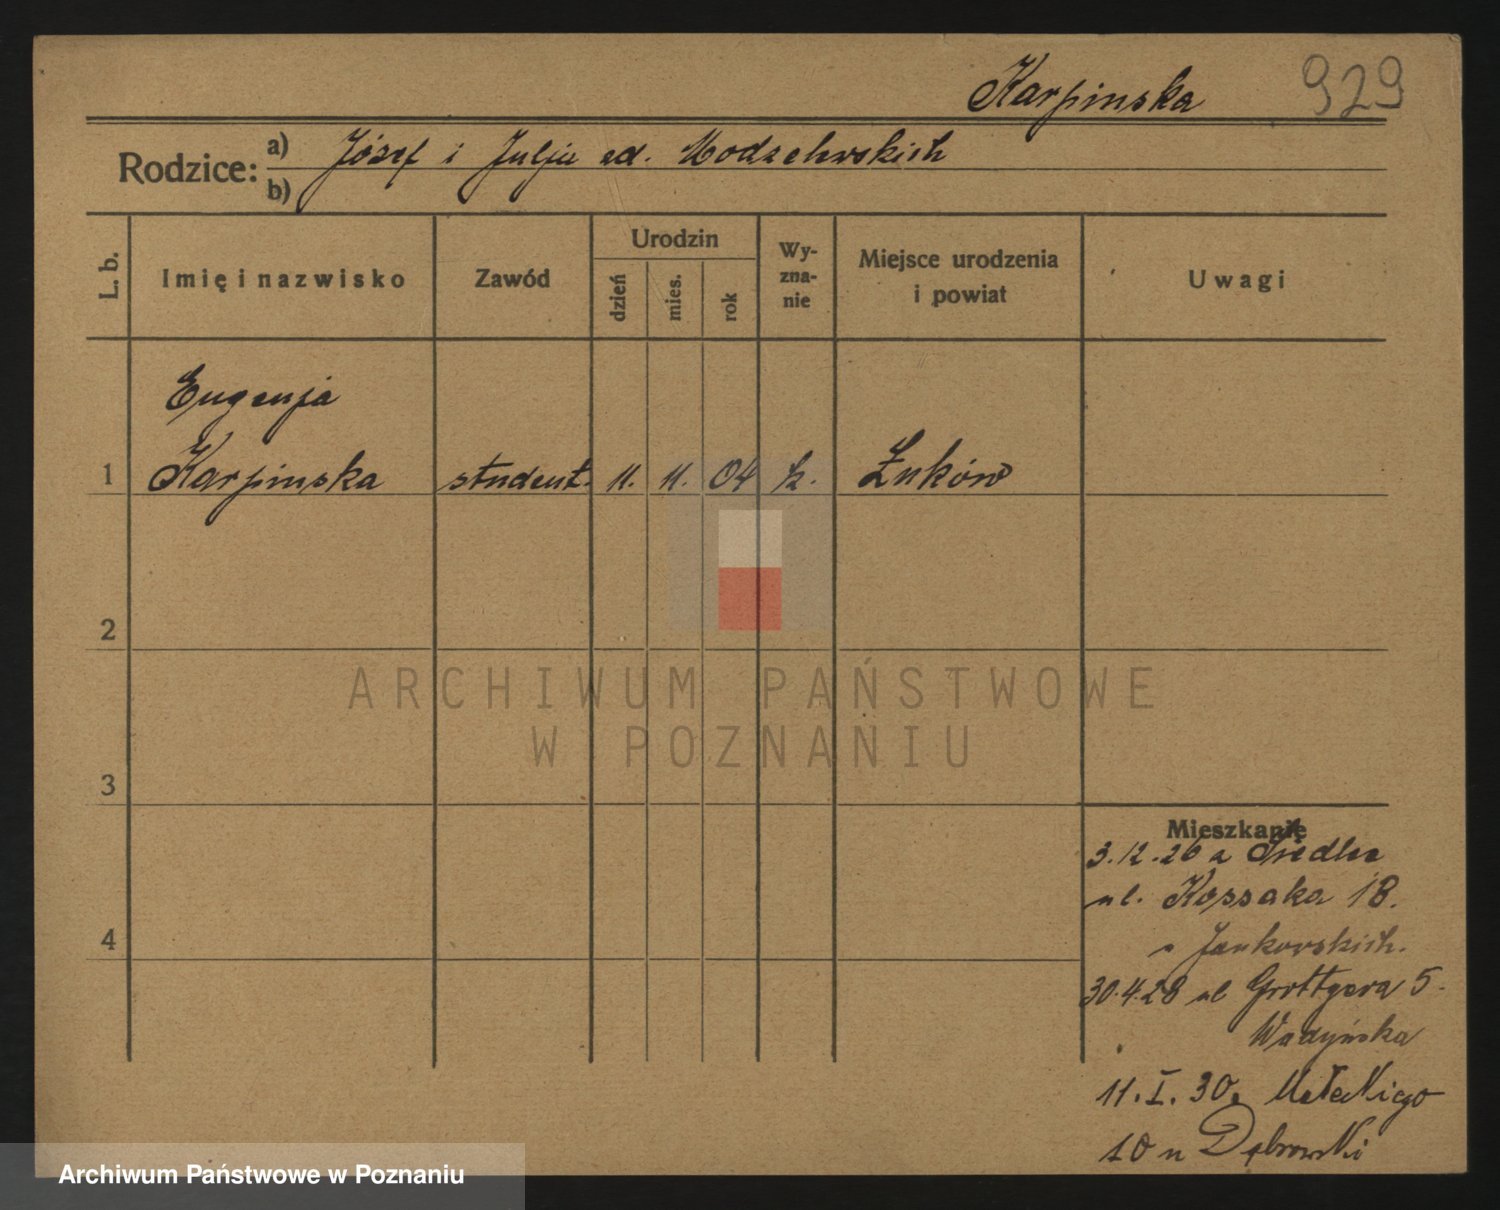 Karpinska 929
Rodzice: a) Józef i Julja zd. Modzelewskich
b)
L. b. Imię i nazwisko Zawód Urodzin dzień mies. rok Wy-zna-nie Miejsce urodzenia i powiat Uwagi
Eugenja
1 Karpinska student. 11. 11. 04 k. Łuków
2
ARCHIWUM PAŃSTWOWE
W POZNANIU
3
Mieszkanie
3.12.26 z Siedlce
ul. Kossaka 18.
Jankowskich.
4
30.4.28 ul Grottgera 5.
11.I.30. Małeckiego
10 u Dąbrowski
Archiwum Państwowe w Poznaniu